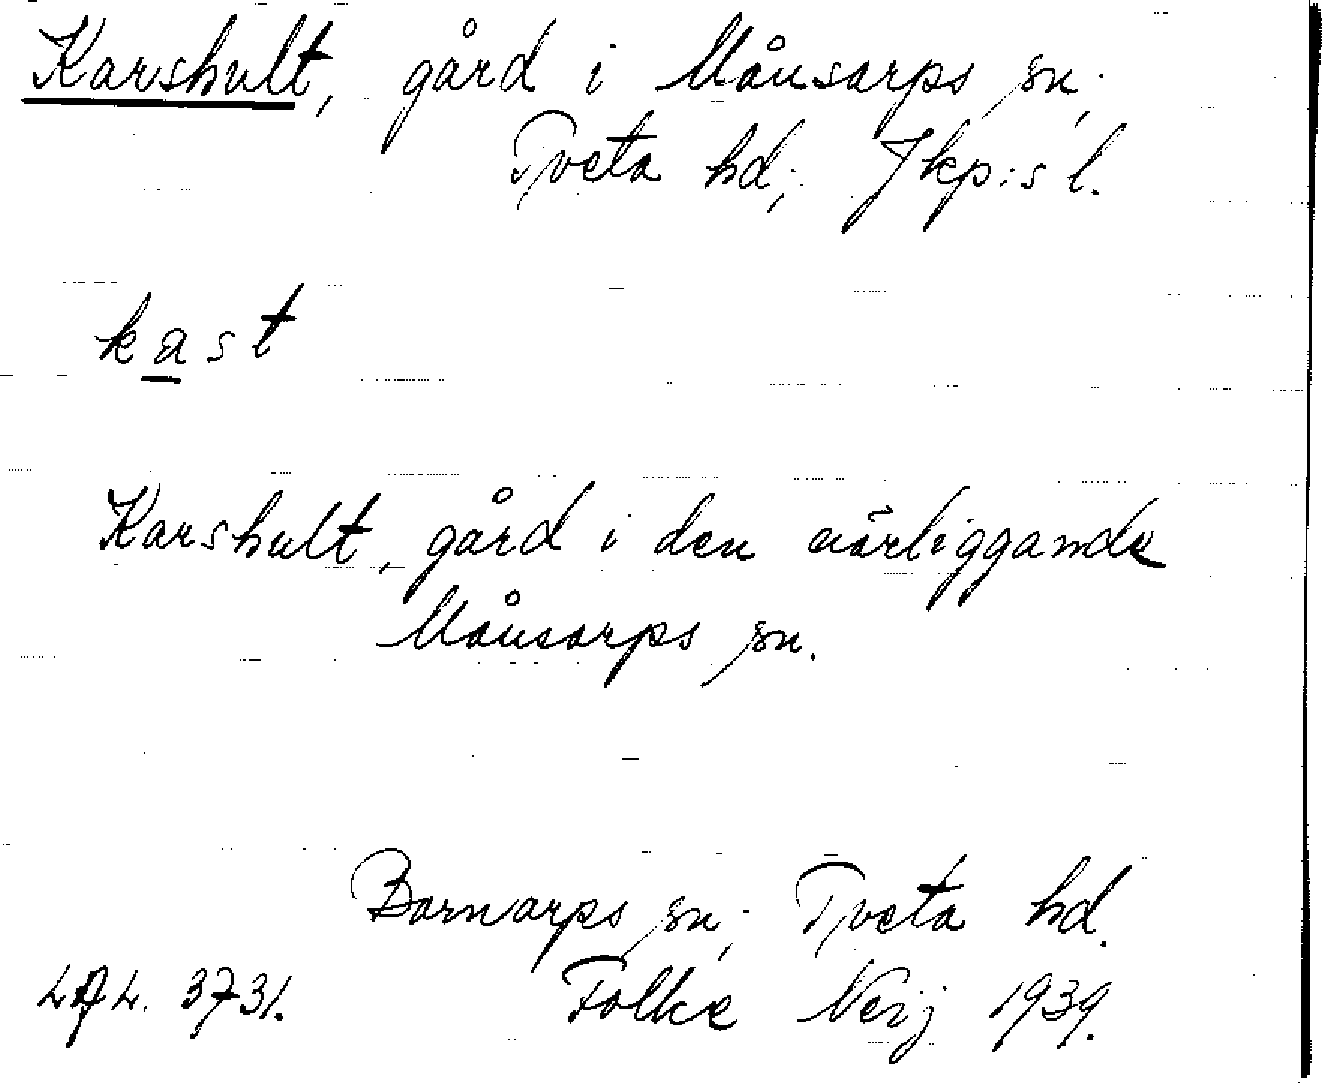 Karshult, gård i Månsarps sn;
Tveta hd; Jkp:s l.
kast
Karshult, gård i den närliggande
Månsarps sn.
Barnarps sn; Tveta hd.
3731. Folke Neij 1939.